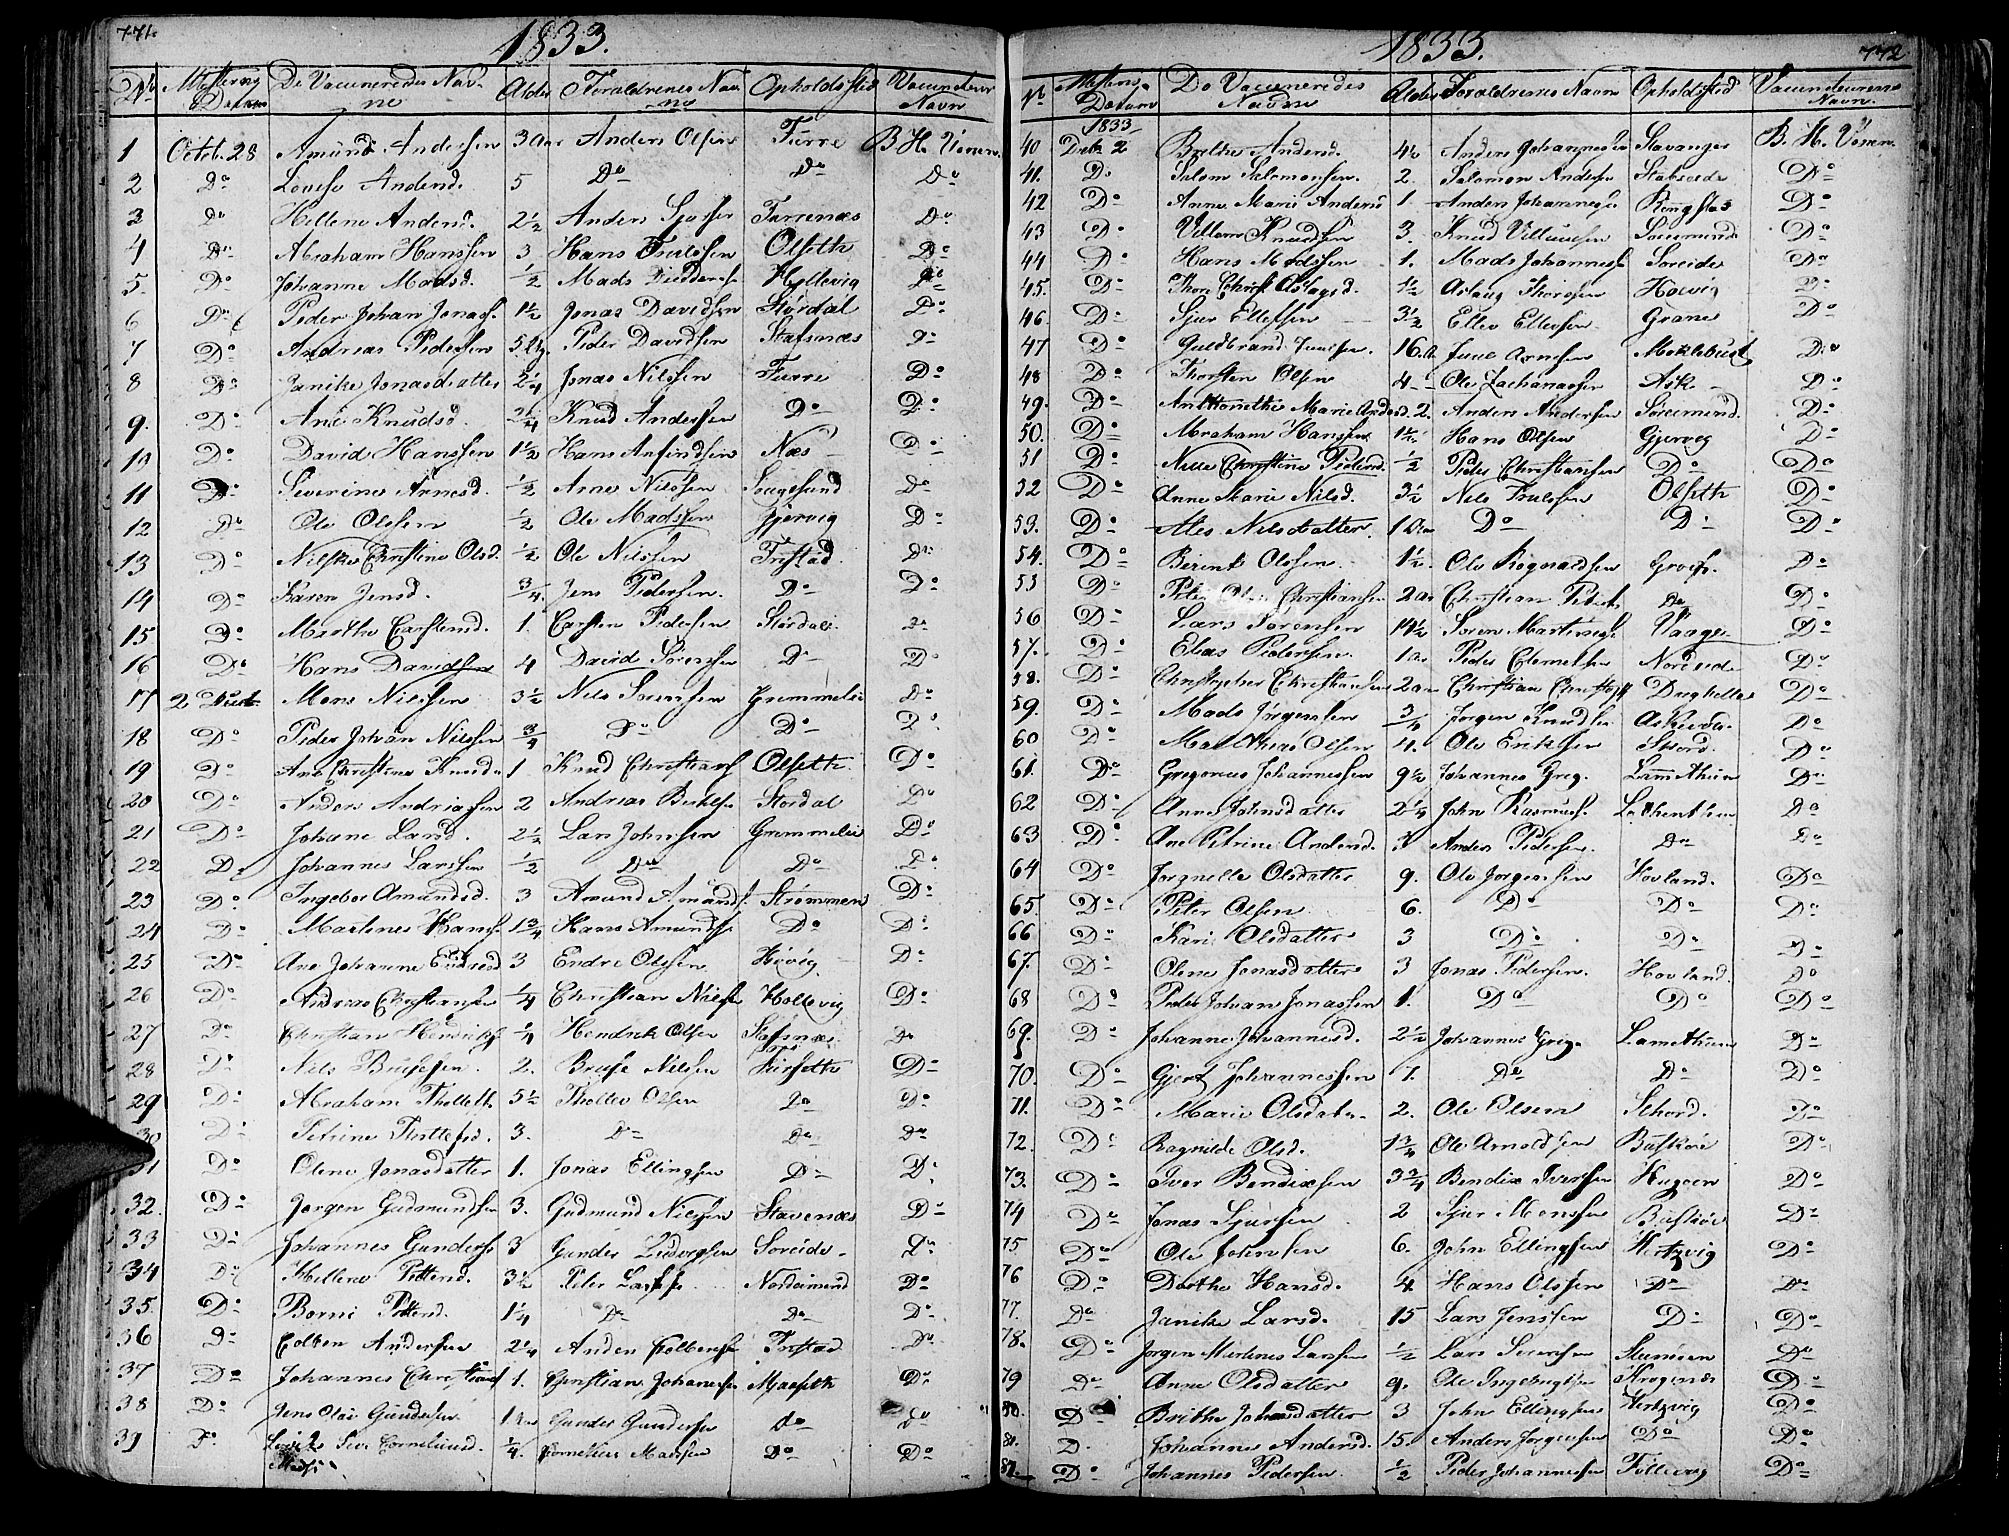 771.
1833.
No Attesternes Datum De Vaccineredes Navne Alder Forældrenes Navne Opholdssted Vaccinteurens Navn
1 Octob. 28 Amund Andersen 3 Aar Anders Olsen Furre B. H. Unen
2 Do Lovise Andersd. 5 Do Do Do
3 Do Hellene Andersd. 2 1/2 Anders Furrenæs Do
4 Do Abraham Hanssen 3 Hans Trulssen Olseth Do
5. Do Johanne Madsd. 1/2 Mads Hyllevig Do
6 Do Peder Johan Jonass. 1 1/2 Jonas Davidsen Stördal Do
7 Do Andreas Pedersen 5 Peder Davidsen Stafsnæs Do
8 Do Janike Jonasdatter 2 1/4 Jonas Nilssen Furre Do
9. Do Ane Knudsd. 2 1/4 Knud Andersen Do Do
10 Do David Hanssen 1 1/2 Hans Amundsen Næs Do
11 Do Severine Arnesd. 1/2 Arne Nilssen Do
12 Do Ole Olssen 1/2 Ole Madssen Gjervig Do
13 Do Christine Olsd. 1/2 Ole Nilssen Tristad Do
14 Do Karen Jensd. 3/4 Jens Pedersen. Do Do
15 Do Marthe Carstensd. 1. Carsten Pedersen Stördal Do
16 Do Hans Davidsen 4 David Sörenssen Do Do
17 2 Dec. Mons Nilssen 3 1/2 Nils Grimmelie Do
18 Do Peder Johan Nilssen 3/4 Do Do Do
19 Do Ane Christine Knudsd. 1 Knud Christians Olseth Do
20 Do Anders Andreassen 2 Andreas Stordal Do
21 Do Johane Larsd. 2 1/2 Lars Johnssen Grimmelie Do
22 Do Johannes Larssen 1/2 Do Do Do
23 Do Ingebor Amundsd. 3 Amund Amunds. Strömmen Do
24 Do Martines Hanss. 1 3/4 Hans Amundss. Do Do
25 Do Ane Johanne Endresd 3 Endre Olssen Do
26 Do Andreas Christiansen 1/4 Christian Niels Hollevig Do
27 Do Christian Hendriks. 1/4 Hendrik Olsen Stafsnæs Do
28 Do Nils Brusesen. 2. Bruse Nilssen Do
29 Do Abraham Thollefs. 5 1/2 Thollev Olsen Do Do
30 Do Petrine Thollefsd. 3. Do Do Do
31 Do Olene Jonasdatter 1. Jonas Ellingsen Do Do
32. Do Jørgen Gudmundsen 3. Gudmund Nilssen Stavenæs Do
33 Do Johannes Gunders. 3 Gunder Ludvigsen Soreide Do
34 Do Hellene Petersd. 3 1/2 Peter Larss. Do
35. Do Petersd. 1 1/4 Do Do Do
36 Do Colben Andersen 2 1/4 Anders Colbens. Tristad Do
37 Do Johannes Christiansd 1. Christian Johanesen Maaseth Do
38 Do Jens Olai Gundersen Gunder Gundersen Do Do
39 Do Corneliusd. 1/4. Cornelius Madssen Do Do

1833.
772
No Attesternes Datum De Vaccineredes Navne Alder Forældrenes Navn Opholdssted Vaccinteurens Navn.
1833
40 Decb. 2 Brithe Andersd. 4 1/2 Anders Johannessen Stavanger B. H. Unen
41. Do Salom Salomonsen. 2. Salomon Anderss. Do
42 Do Anne Marie Andersd 1. Anders Johannes Ringstad Do
43 Do Villom Knudsen 3. Knud Villumsen Do
44 Do Hans Madssen 1. Mads Johannes Soreide Do
45. Do Thore Christ. Aslagsd. 1 1/2 Aslaug Thorssen Do
46. Do Sjur Ellefsen 3 1/2 Ellev Ellevsen Grane Do
47 Do Guldbrand 16 Meklebust Do
48 Do Thorsten Olsen 4 Ole Zachariassen Ask Do
49. Do Anthonethe Marie Andersd. 2. Anders Andersen Do
50. Do Abraham Hanssen 1 1/2 Hans Olsen Gjervig Do
51 Do Christine Pedersd. 1/2 Peder Christiansen Do Do
52 Do Anne Marie Nilsd. 3 1/2 Nils Trulssen Olseth Do
53. Do Ales Nilsdatter. 1 Do Do Do
54. Do Berent Olssen 1 1/2 Ole Rognaldsen Do
55 Do Peter Christiansen 2 Christian Peters. Do Do
56 Do Lars Sörensen 14 1/2 Sören Martines. Vaage Do
57. Do Elias Pedersen. 1 Peder Clemetsen Nordeide Do
58. Do Christopher Christiansen 2 Christian Christop Do
59. Do Mads Jörgenssen 3/4 Jörgen Knudsen Askevold Do
60 Do Olsen 4. Ole Eriksen Do
61. Do Gregorius Johannessen 9 1/2 Johannes Greg. Do
62 Do Anne Johnsdatter 2 1/4 John Rasmuss. Do
63 Do Ane Petrine Andersd. 3 Anders Pedersen. Do Do
64 Do Olsdatter 9. Ole Jørgenssen Hovland. Do
65. Do Peter Olsen 6. Do Do Do
66 Do Kari Olsdatter 3 Do Do Do
67. Do Olene Jonasdatter 3 Jonas Pedersen. Hovland Do
68 Do Peder Johan Jonassen 1. Do Do Do
69. Do Johanne Johannesd. 2 1/2 Johannes Greg. Do
70. Do Gjert Johannessen 1. Do Do Do
71. Do Marie Olsdat. 2. Ole Olsen Do
72. Do Ragnilde Olsd. 1 3/4 Ole Arnoldsen Buskøe Do
73. Do Iver Bendixsen 3 3/4 Bendix Iversen Hugoen Do
74 Do Jonas Sjursen 2 Sjur Monssen Buskøe Do
75 Do Ole Johnsen 6. John Ellingsen Hertzvig Do
76 Do Dorthe Hansd. 4. Hans Olssen Do Do
77. Do Janike Larsd. 15 Lars Jenssen Do Do
78. Do Jørgen Mertines Larssen 1/2 Lars Do
79 Do Anne Olsdatter 9. Ole Do
80. Do Brithe Johnsdatter 3 John Ellingsen Hertzvig Do
81. Do Johannes Andersd. 15. Anders Jørgensen Do Do
82. Do Johannes Pedersen 1/2 Peder Johannessen Follevog Do